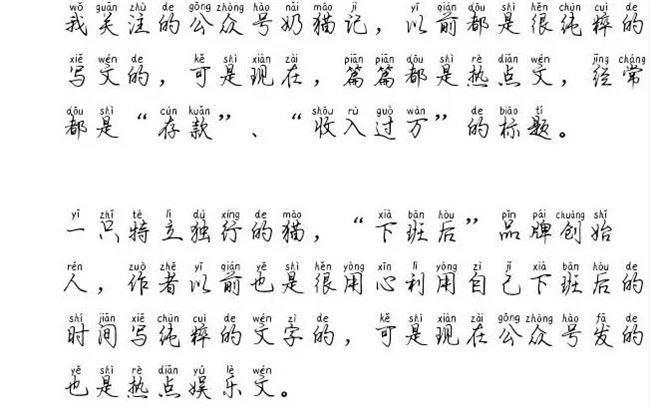 wǒ guān zhù de gōng zhòng hào nǎi māo jì yǐ qián dōu shì hěn chún cuì de
我关注的公众号奶猫记，以前都是很纯粹的
xiě wén de kě shì xiàn zài piān piān dōu shì rè diǎn wén jīng cháng
写文的，可是现在，篇篇都是热点文，经常
dōu shì cún kuǎn shōu rù guò wàn de biāo tí
都是“存款”、“收入过万”的标题。
yī zhǐ tè lì dú xíng de māo xià bān hòu pǐn pái chuàng shǐ
一只特立独行的猫，“下班后”品牌创始
rén zuò zhě yǐ qián yě shì hěn yòng xīn lì yòng zì jǐ xià bān hòu de
人，作者以前也是很用心利用自己下班后的
shí jiān xiě chún cuì de wén zì de kě shì xiàn zài gōng zhòng hào fā de
时间写纯粹的文字的，可是现在公众号发的
yě shì rè diǎn yú lè wén
也是热点娱乐文。